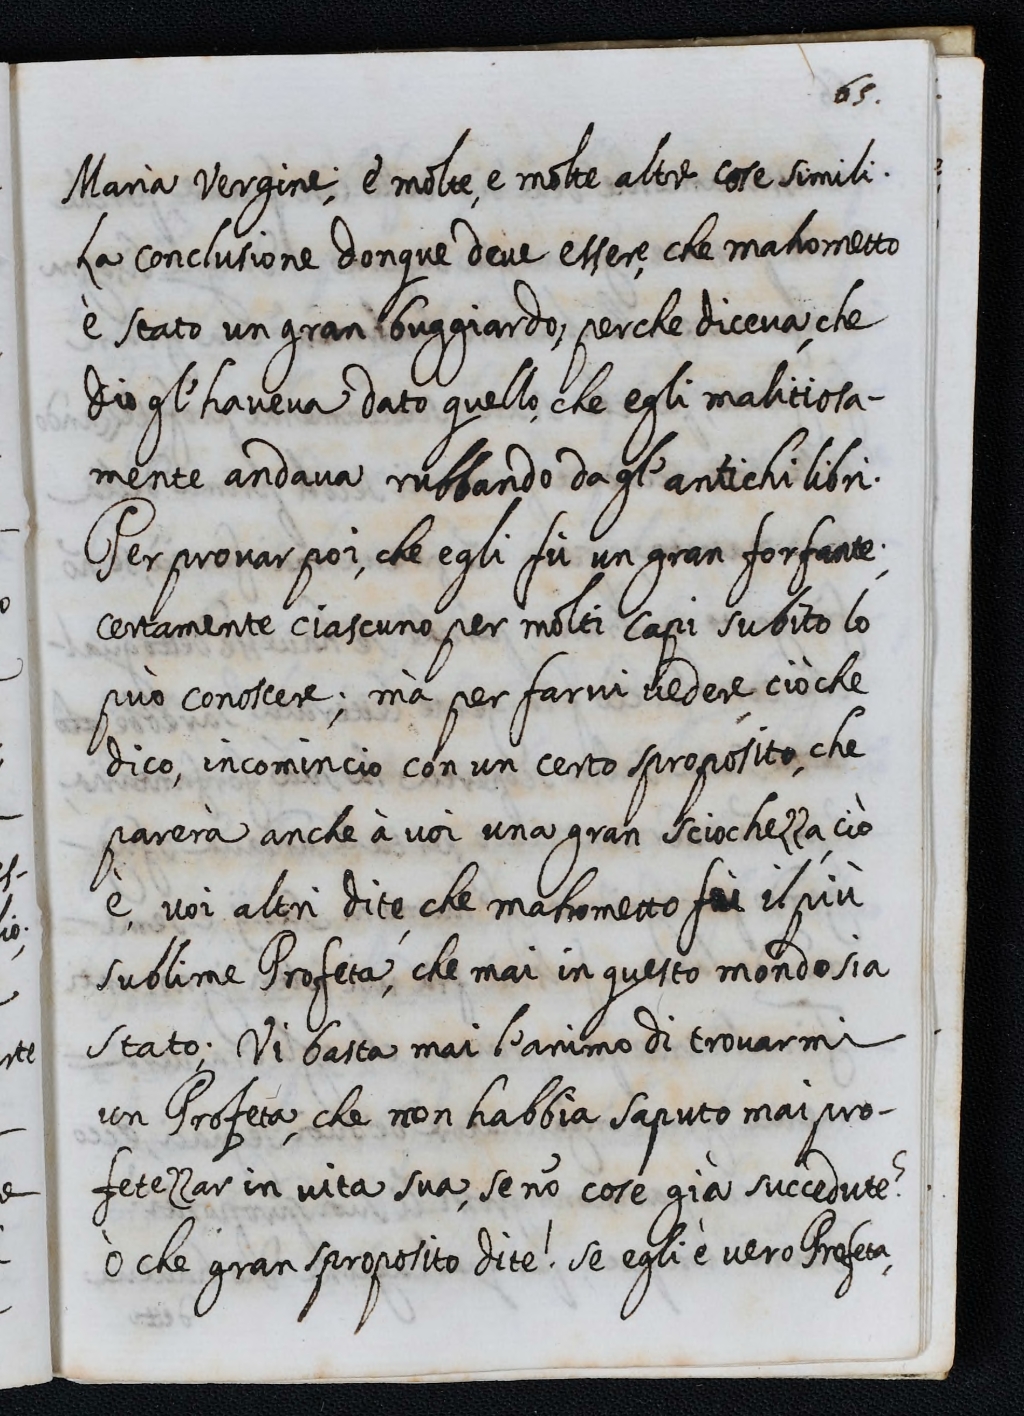 65.
Maria Vergine; è molte, e molte altre cose simili.
La conclusione donque deve essere, che mahometto
è stato un gran buggiardo, perche diceva, che
dio gl'haveva dato quello, che egli malitiosa-
mente andava rubbando da gl'antichi libri.
Per provar poi, che egli fù un gran forfante;
certamente ciascuno per molti capi subito lo
può conoscere; mà per farvi vedere, ciò che
dico, incomincio con un certo sproposito, che
parerà anche à voi una gran sciochezza, ciò
è, voi altri dite, che mahometto fù il più
sublime Profeta, che mai in questo mondo sia
stato; Vi basta mai l'animo di trovarmi
un Profeta, che non habbia saputo mai pro-
fetezzar in vita sua, se nõ cose già succedute?
ò che gran sproposito dite! se egli è vero Profeta,